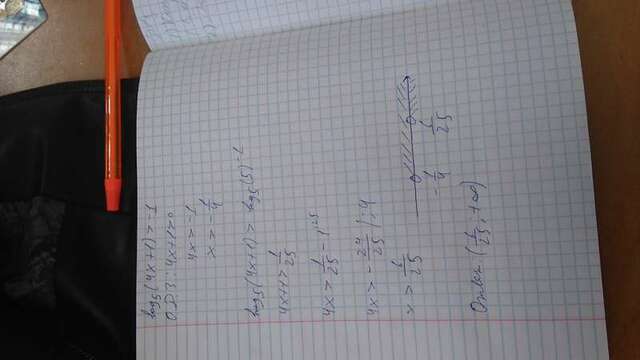 log₅(4x+1) > -1
О.Д.З: 4x+1>0
4x > -1
x > -1/4
log₅(4x+1) > log₅(5)⁻¹
4x+1 > 1/25
4x > 1/25 - 1^25
4x > -24/25 |:4
x > 1/25
-1/4 1/25
Ответ: (1/25; +∞)